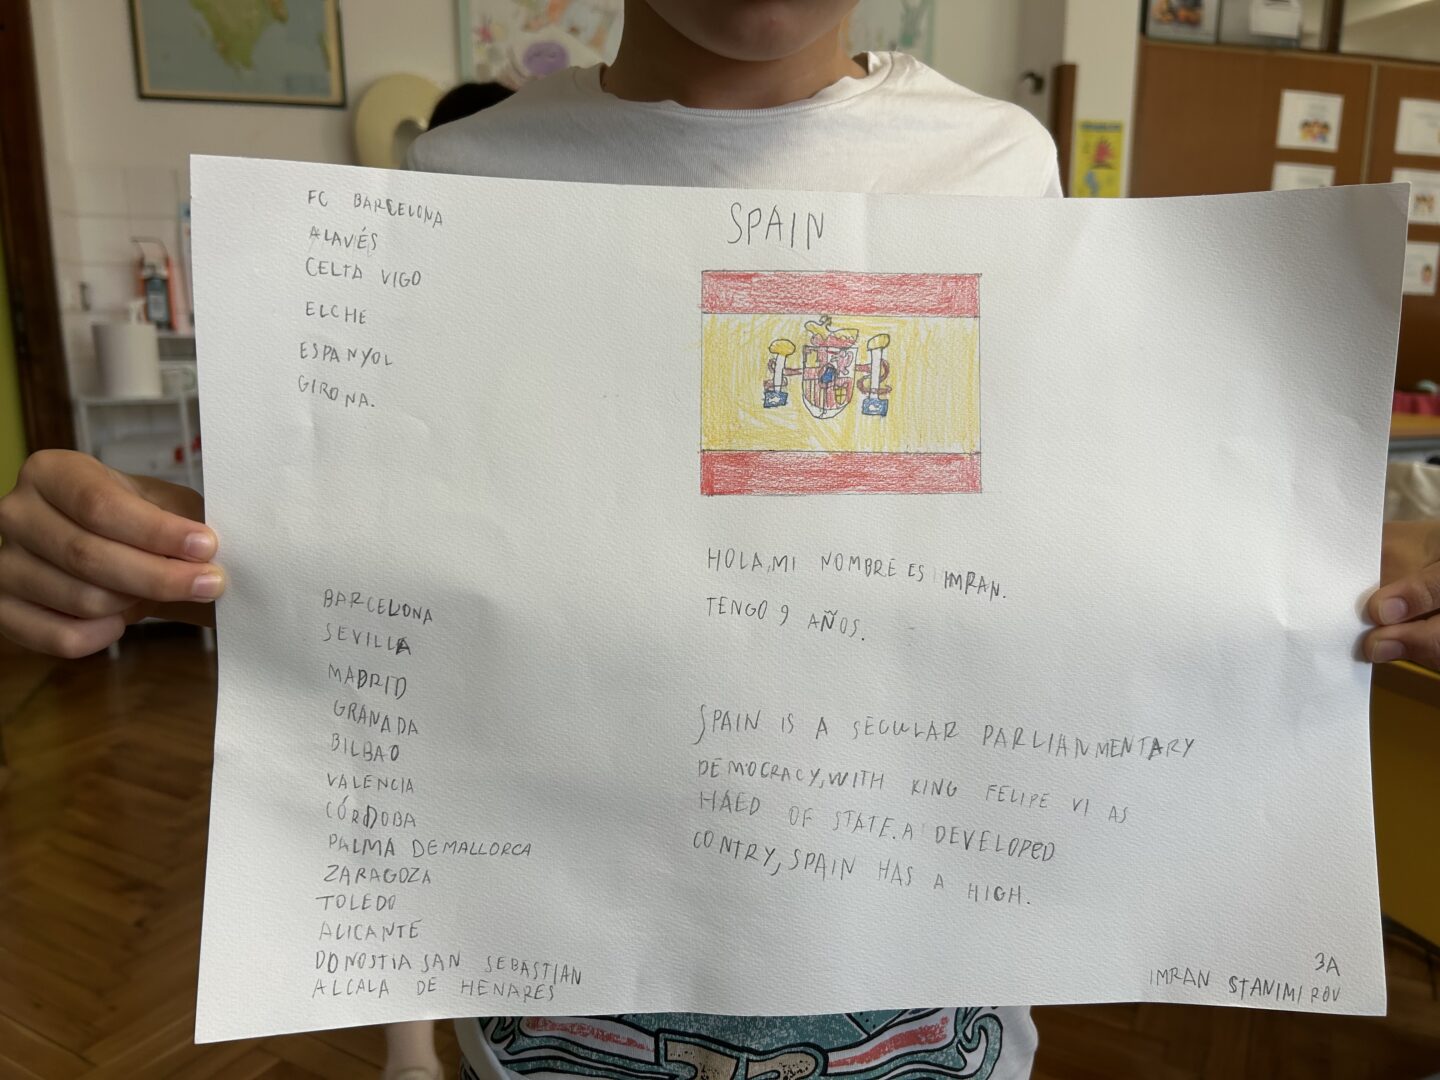 FC BARCELONA
ALAVÉS
CELTA VIGO
ELCHE
ESPANYOL
GIRONA.
BARCELONA
SEVILLA
MADRID
GRANADA
BILBAO
VALENCIA
CÓRDOBA
PALMA DEMALLORCA
ZARAGOZA
TOLEDO
ALICANTE
DONOSTIA SAN SEBASTIAN
ALCALA DE HENARES
SPAIN
HOLA,MI NOMBRE ES IMRAN.
TENGO 9 AÑOS.
SPAIN IS A SECULAR PARLIANMENTARY
DEMOCRACY,WITH KING FELIPE VI AS
HAED OF STATE.A DEVELOPED
CONTRY, SPAIN HAS A HIGH.
3A
IMRAN STANIMIROV